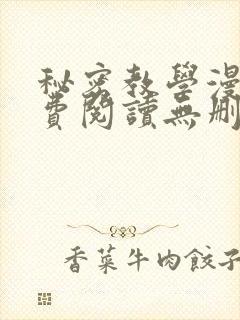 秘密教學漫
費閱讀無刪
香菜牛肉餃子